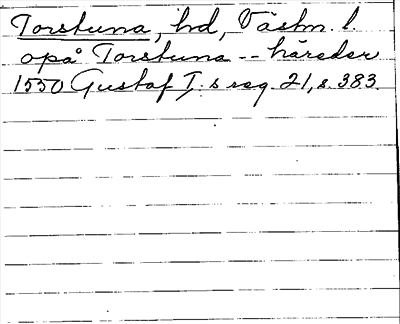 Torstuna, hd, Västm. l.
opå Torstuna -- häreder
1550 Gustaf I:s reg. 21, s. 383.